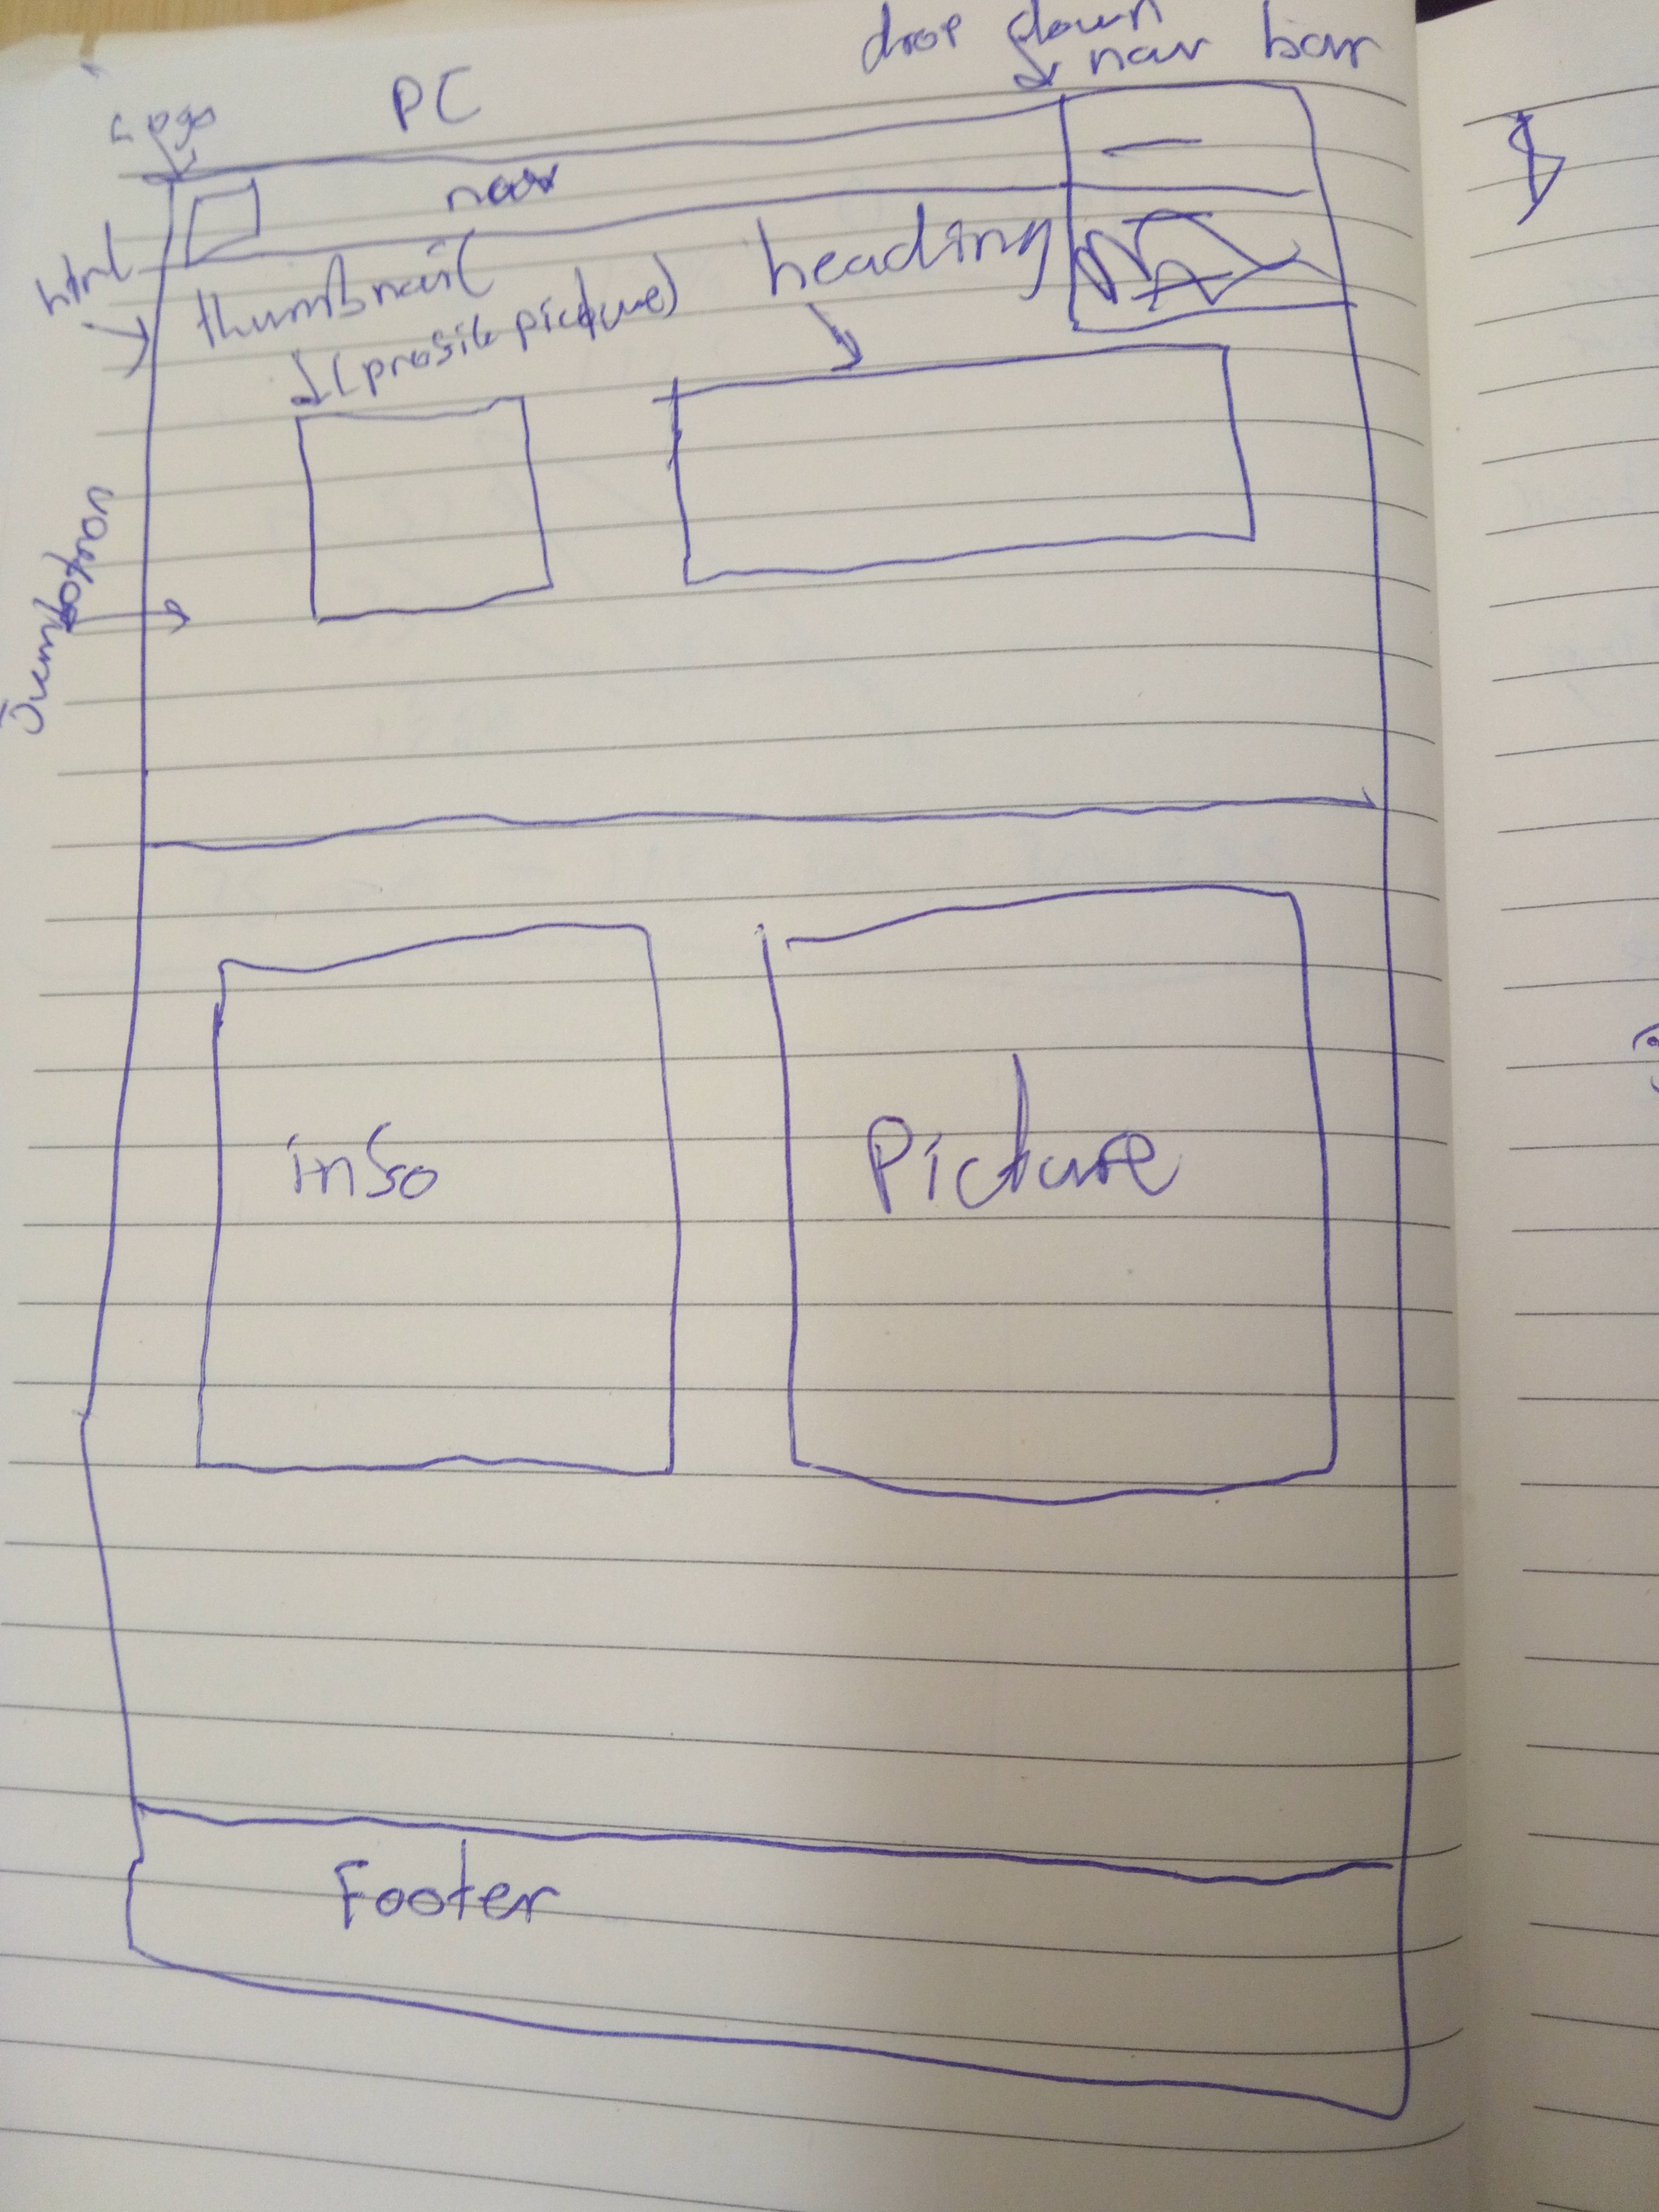 drop down
nav bar
PC
Logo
nav
html
thumbnail
(profile picture)
heading
Jumbotron
info
Picture
Footer